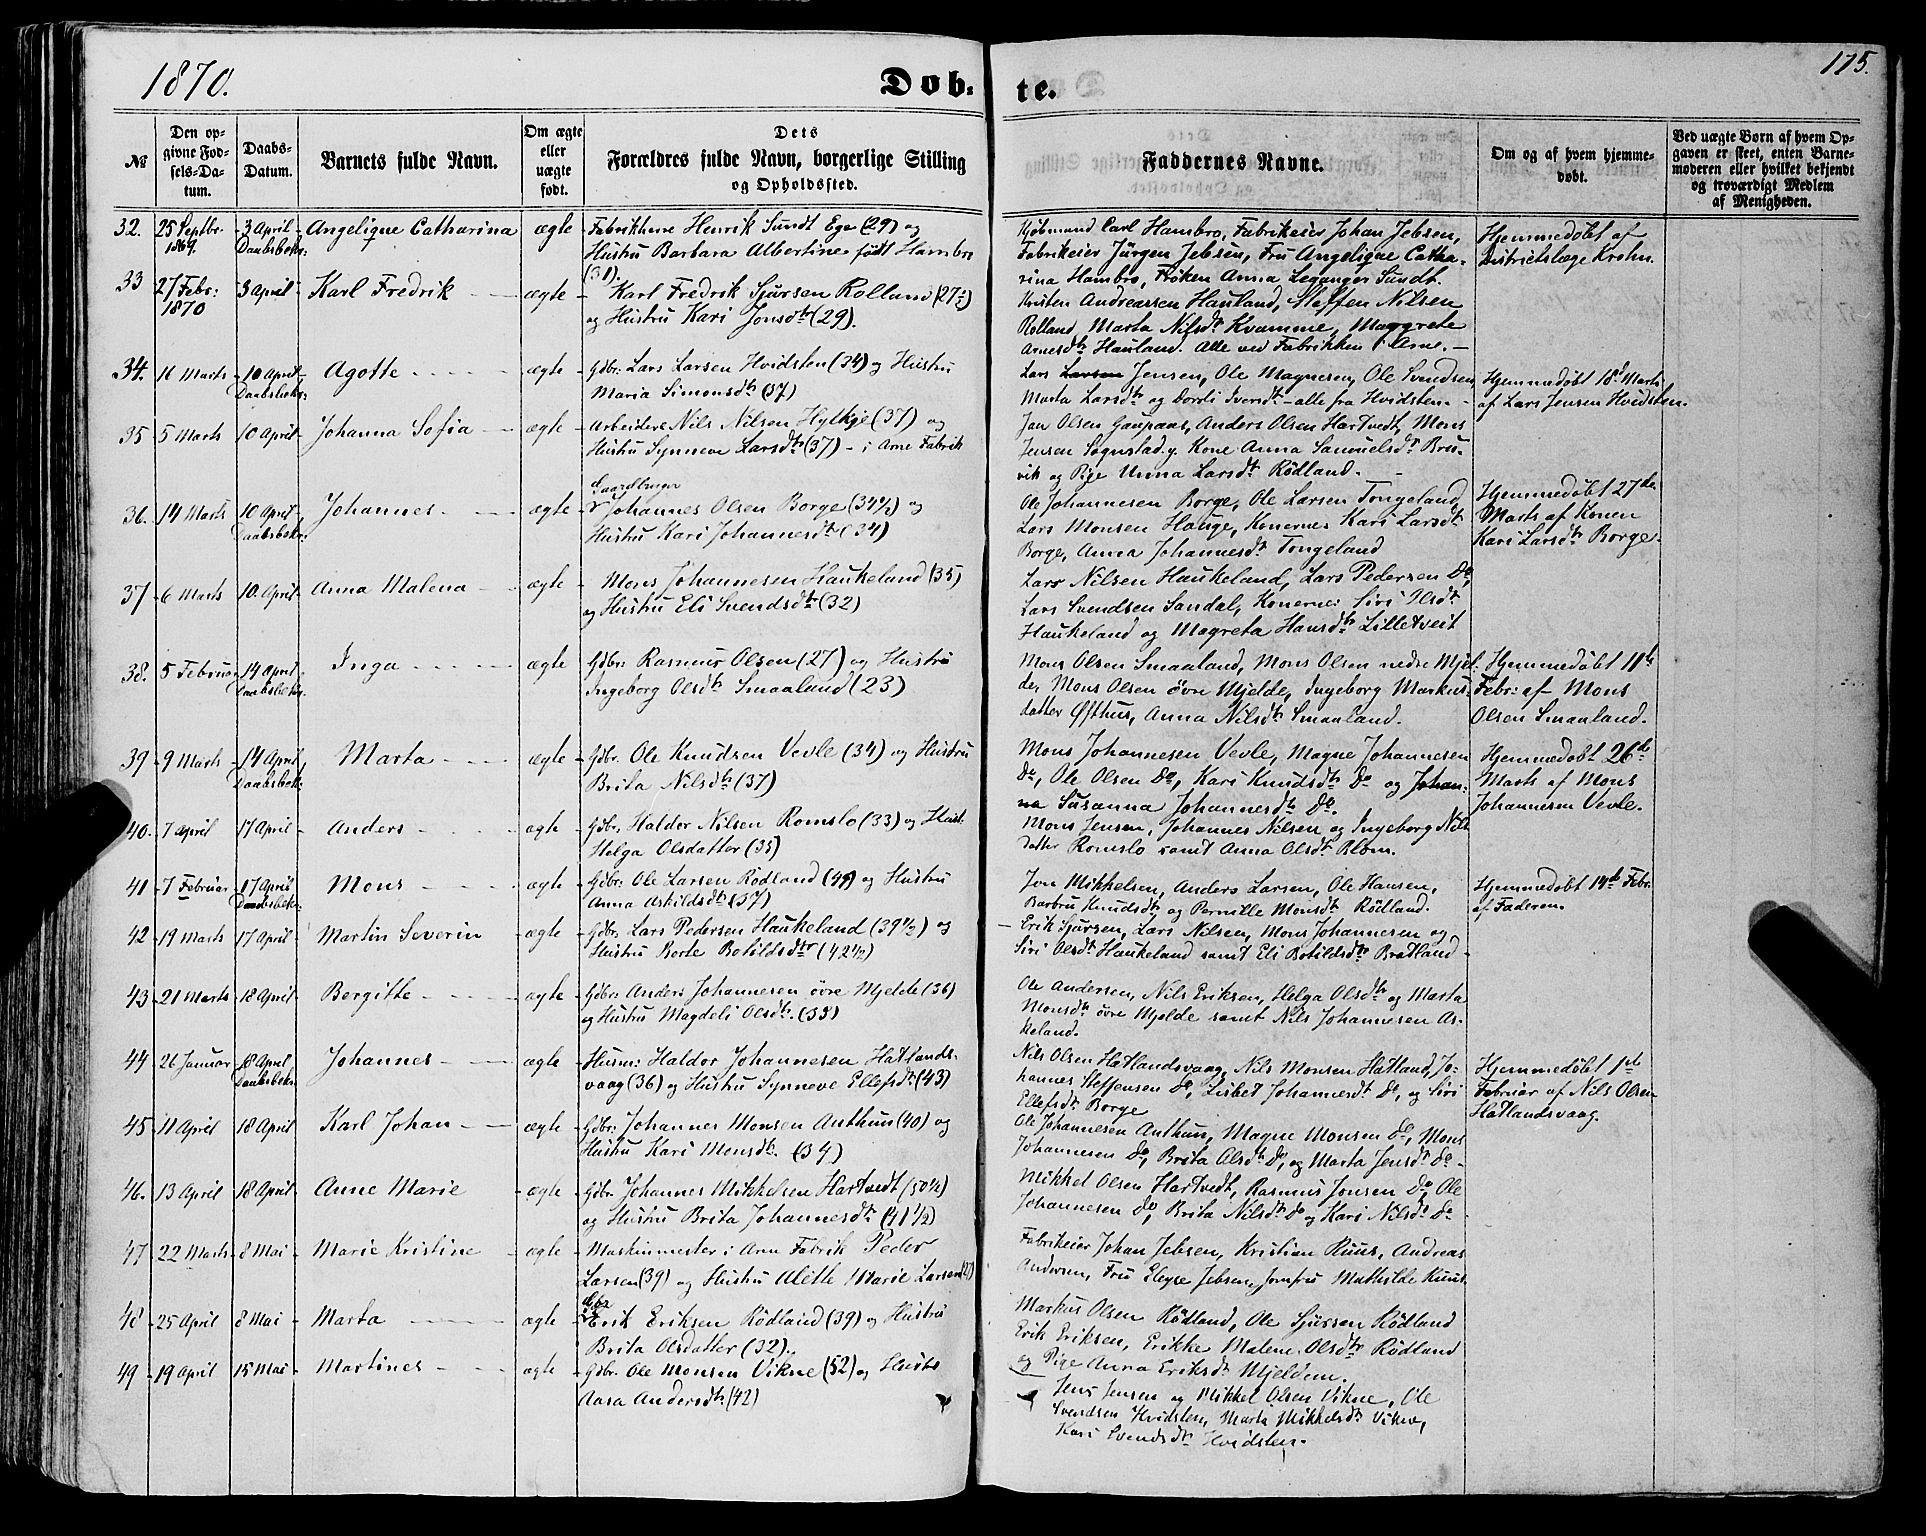 1870.
Døb-
te.
175.
№
Den op-
givne Fød-
sels-Da-
tum.
Daabs-
Datum.
Barnets fulde Navn.
Om ægte
eller
uægte
født.
Dets
Forældres fulde Navn, borgerlige Stilling
og Opholdssted.
Faddernes Navne.
Om og af hvem hjemme-
døbt.
Ved uægte Børn af hvem Op-
gaven er skeet, enten Barne-
moderen eller hvilket bekjendt
og troværdigt Medlem
af Menigheden.
32. 25 Septbr 1869. 3 April Daabsbekr: Angelique Catharina ægte
Fabrikherre Henrik Sundt Ege (29) og
Hustru Barbara Albertine født Hambro
(31).
Kjøbmand Carl Hambro, Fabrikeier Johan Jebsen,
Fabrikeier Jürgen Jebsen, Fru Angelique Catha-
rina Hambro, Frøken Anna Leganger Sundt.
Hjemmedøbt af
Districtslæge Krohn.
33 27 Febr: 1870 3 April Karl Fredrik ægte
Karl Fredrik Sjursen Rolland (27½)
og Hustru Kari Jonsdtr (29).
Kristen Andreassen Hauland, Steffen Nilsen
Rolland, Marta Nilsdtr Kvamme, Magrete
Arnesdtr Hauland. Alle ved Fabrikken i Arne.
34. 16 Marts 10 April Daabsbekr: Agotte ægte
Gdbr: Lars Larsen Hvidsten (34) og Hustru
Maria Simonsdtr (37)
Lars Larsen Jensen, Ole Magnesen, Ole Svendsen,
Marta Larsdtr og Dordi Iversdtr – alle fra Hvidsten.
Hjemmedøbt 18d Marts
af Lars Jensen Hvidsten.
35 5 Marts 10 April Johanna Sofia ægte
Arbeider Nils Nilsen Hylkje (37) og
Hustru Synneve Larsdtr (37) – i Arne Fabrik
Jan Olsen Gaupaas, Anders Olsen Hartvedt, Mons
Jensen Sognstad. g. Kone Anna Samuelsdtr Bru-
vik og Pige Unna Larsdtr Rødland.
36. 14 Marts 10 April Daabsbekr: Johannes ægte
Gaardbruger
Johannes Olsen Borge (34½) og
Hustru Kari Johannesdtr (34)
Ole Johannesen Borge, Ole Larsen Tongeland,
Lars Monsen Hauge, Konerne: Kari Larsdtr
Borge, Anna Johannesdtr Tongeland
Hjemmedøbt 27de
Marts af Konen
Kari Larsdtr Borge.
37 6 Marts 10 April Anna Malena ægte
Mons Johannesen Haukeland (35)
og Hustru Eli Svendsdtr (32)
Lars Nilsen Haukeland, Lars Pedersen Do,
Lars Svendsen Sandal, Konerne: Siri Olsdtr
Haukeland og Magreta Hansdtr Lilletveit
38. 5 Februar 14 April Daabsbekr: Inga ægte
Gdbr: Rasmus Olsen (27) og Hustru
Ingeborg Olsdtr Smaaland (23)
Mons Olsen Smaaland, Mons Olsen nedre Mjel-
de, Mons Olsen övre Mjelde, Ingeborg Markus-
datter Øfthus, Anna Nilsdtr Smaaland.
Hjemmedøbt 11te
Febr: af Mons
Olsen Smaaland.
39 9 Marts 14 April Daabsbekr: Marta ægte
Gdbr. Ole Knudsen Vevle (34) og Hustru
Brita Nilsdtr (37)
Mons Johannesen Vevle, Magne Johannesen
Do, Ole Olsen Do, Kari Knudsdtr Do og Johan-
na Susanna Johannesdtr Do.
Hjemmedøbt 26de
Marts af Mons
Johannesen Vevle.
40. 7 April 17 April Anders ægte
Gdbr. Haldor Nilsen Romslo (33) og Hust.
Helga Olsdatter (35)
Mons Jensen, Johannes Nilsen og Ingeborg Nils
datter Romslo samt Anna Olsdtr Blom.
41 7 Februar 17 April Daabsbekr: Mons ægte
Gdbr: Ole Larsen Rødland (49) og Hustru
Anna Askildsdtr (37)
Jon Mikkelsen, Anders Larsen, Ole Hansen,
Barbru Knudsdtr og Pernille Monsdtr Rødland.
Hjemmedøbt 14d Febr:
af Faderen.
42 19 Marts 17 April Martin Severin ægte
Gdbr. Lars Pedersen Haukeland (39½) og
Hustru Borte Botildsdtr (42½)
Erik Sjursen, Lars Nilsen, Mons Johannesen og
Siri Olsdtr Haukeland samt Eli Botildsdtr Bratland
43 21 Marts 18 April Bergitte ægte
Gdbr: Anders Johannesen övre Mjelde (36)
og Hustru Magdeli Olsdtr. (35)
Ole Andersen, Nils Eriksen, Helga Olsdtr og Marta
Monsdtr övre Mjelde samt Nils Johannesen As-
keland.
44 26 Januar 18 April Daabsbekr Johannes ægte
Husm: Haldor Johannesen Hatlands-
vaag (36) og Hustru Synneve Ellefsdtr (43)
Nils Olsen Hatlandsvaag, Nils Monsen Hatland, Jo-
hannes Steffensen Do, Lisbet Johannesdtr Do, og Siri
Ellefsdtr Borge
Hjemmedøbt 1ste
Februar af Nils Olsen
Hatlandsvaag.
45 11 April 18 April Karl Johan ægte
Gdbr: Johannes Monsen Anthun (40) og
Hustru Kari Monsdtr. (34)
Ole Johannesen Anthun, Magne Monsen Do, Mons
Johannesen Do, Brita Olsdtr Do, og Marta Jensdtr Do
46. 13 April 18 April Anne Marie ægte
Gdbr. Johannes Mikkelsen Hartvedt (50¼)
og Hustru Brita Johannesdtr (41½)
Mikkel Olsen Hartvedt, Rasmus Jonsen Do, Ole
Johannesen Do, Brita Nilsdtr Do og Kari Nilsdtr Do
47 22 Marts 8 Mai Marie Kristine ægte
Maskinmester i Arne Fabrik Peder
Larsen (39) og Hustru Alette Marie Larsen (27)
Fabrikeier Johan Jebsen, Kristian Ruus, Andreas
Andersen, Fru Eleyse Jebsen, Jomfru Mathilde Ruus.
48 25 April 8 Mai Marta ægte
Gdbr
Erik Eriksen Rødland (39) og Hustru
Brita Olsdatter (32).
Markus Olsen Rødland, Ole Sjursen Rødland
Erik Eriksen, Erikke Malene Olsdtr Rødland
og Pige Anna Eriksdtr Mjeldem.
49 19 April 15 Mai Martines ægte
Gdbr. Ole Monsen Vikne (52) og Hustr
Aasa Andersdtr. (42)
Jens Jensen og Mikkel Olsen Vikne, Ole
Svendsen Hvidsten, Marta Mikkelsdtr Vikne,
Kari Svendsdtr Hvidsten.